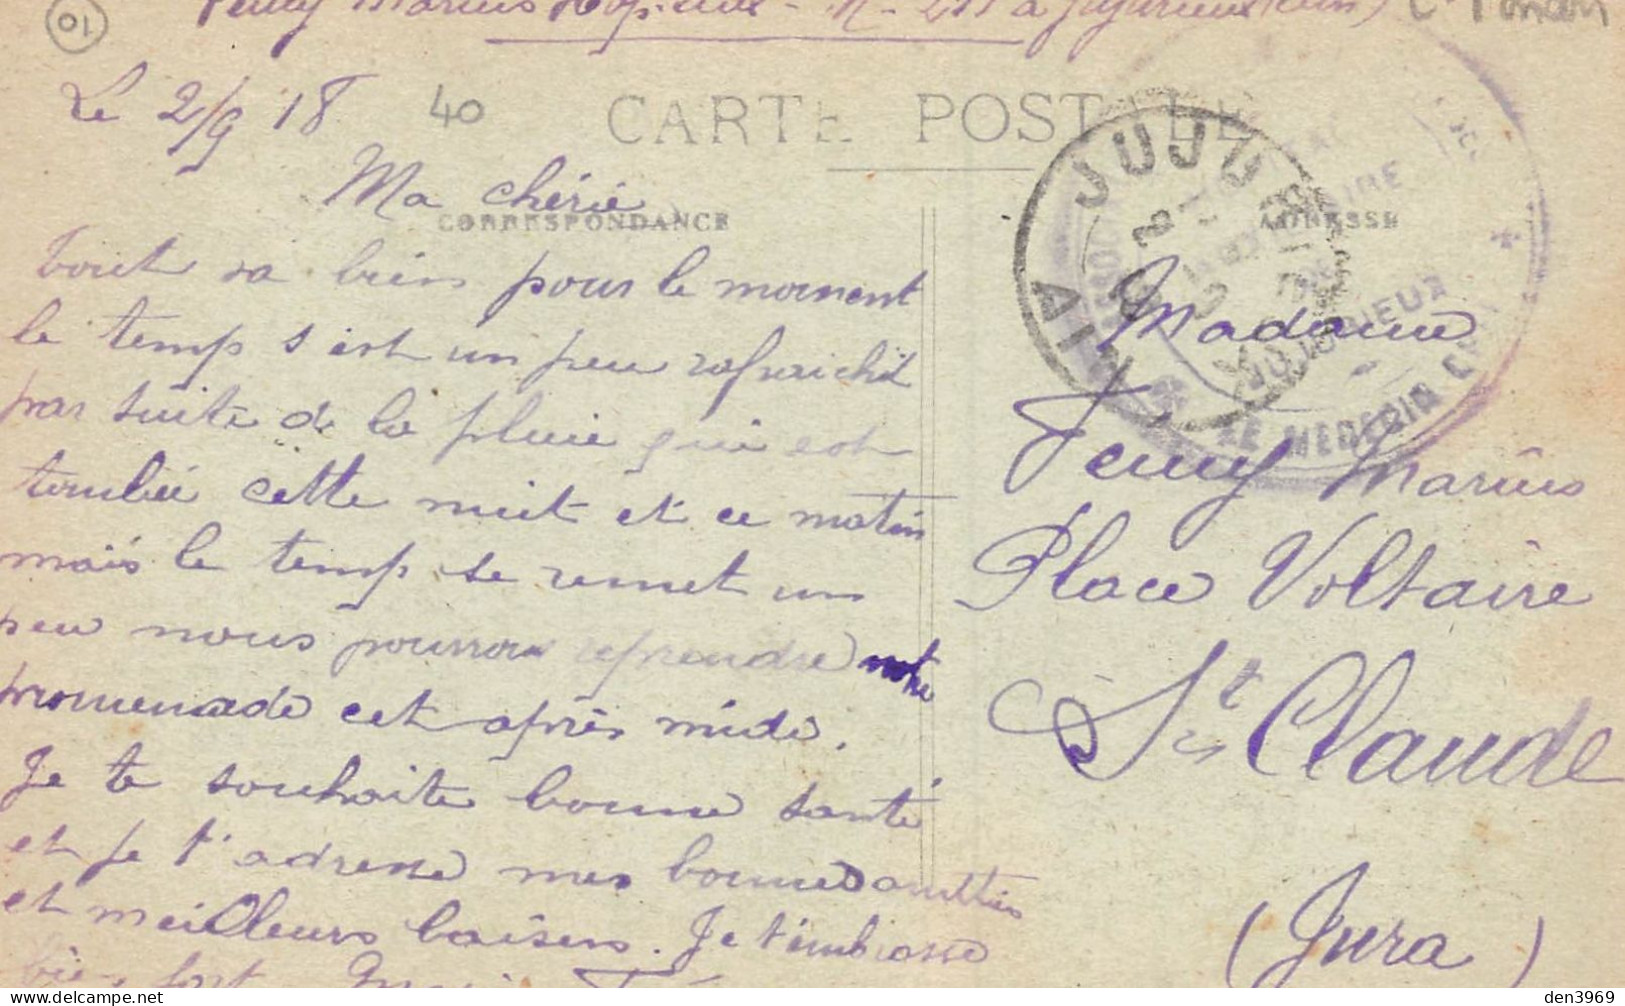 10
Marius
à Jujurieux (Ain)
Le 2/9 18
40
CARTE POSTALE
Ma chérie
CORRESPONDANCE
ADRESSE
tout va bien pour le moment
le temp s'est un peu rafraichit
par suite de la pluie qui est
tombée cette nuit et ce matin
mais le temp se remet un
peu nous pourrons reprendre notre
promenade cet après midi.
Je te souhaite bonne santé
et je t'adresse mes bonnes amitiés
et meilleurs baisers. Je t'embrasse
bien fort
JUJURIEUX
AIN
LE MEDECIN CHEF
JUJURIEUX
Madame
Marius
Place Voltaire
St Claude
(Jura)
den3969